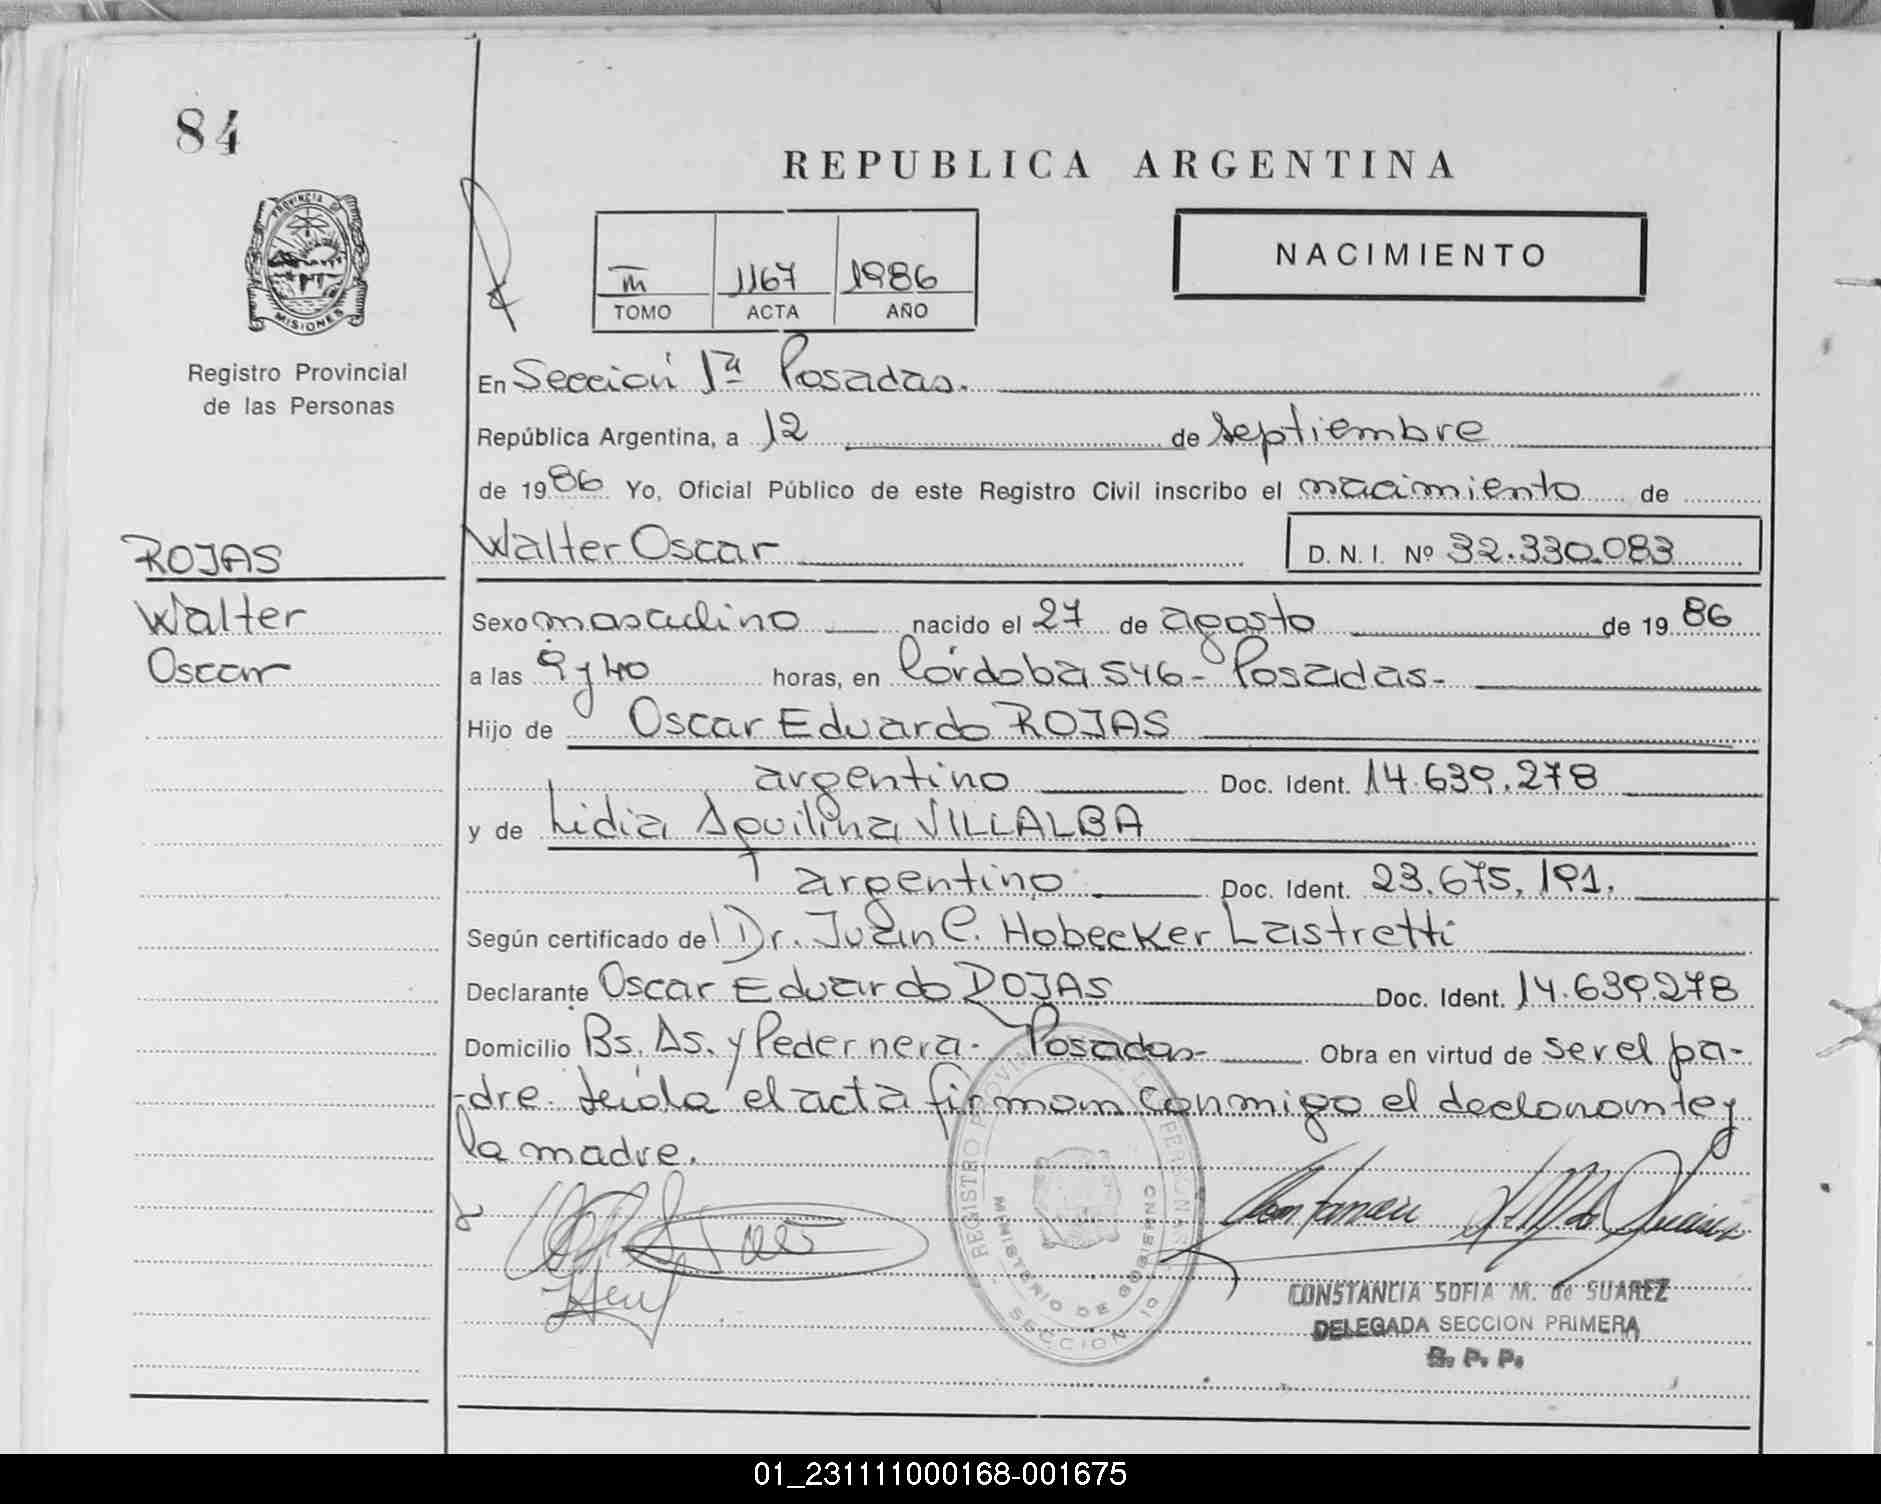 84
REPUBLICA ARGENTINA
PROVINCIA DE
MISIONES
Registro Provincial
de las Personas
III 1167 1986
TOMO ACTA AÑO
NACIMIENTO
En Sección 1ª Posadas.
República Argentina, a 12 de septiembre
de 1986 Yo, Oficial Público de este Registro Civil inscribo el nacimiento de
ROJAS
Walter Oscar D.N.I. Nº 32.330.083
Walter
Oscar
Sexo masculino nacido el 27 de agosto de 1986
a las 9 y 40 horas, en Córdoba 546 - Posadas -
Hijo de Oscar Eduardo ROJAS
argentino Doc. Ident. 14.639.278
y de Lidia Aquilina VILLALBA
argentino Doc. Ident. 23.675.191.
Según certificado de Dr. Juan C. Hobecker Lastretti
Declarante Oscar Eduardo ROJAS Doc. Ident. 14.639.278
Domicilio Bs. As. y Pedernera - Posadas - Obra en virtud de ser el pa-
-dre. Leída el acta firman conmigo el declarante y
la madre.
REGISTRO PROVINCIAL DE LAS PERSONAS
MINISTERIO DE GOBIERNO
SECCION 1º
CONSTANCIA SOFIA M. de SUAREZ
DELEGADA SECCION PRIMERA
R. P. P.
01_231111000168-001675